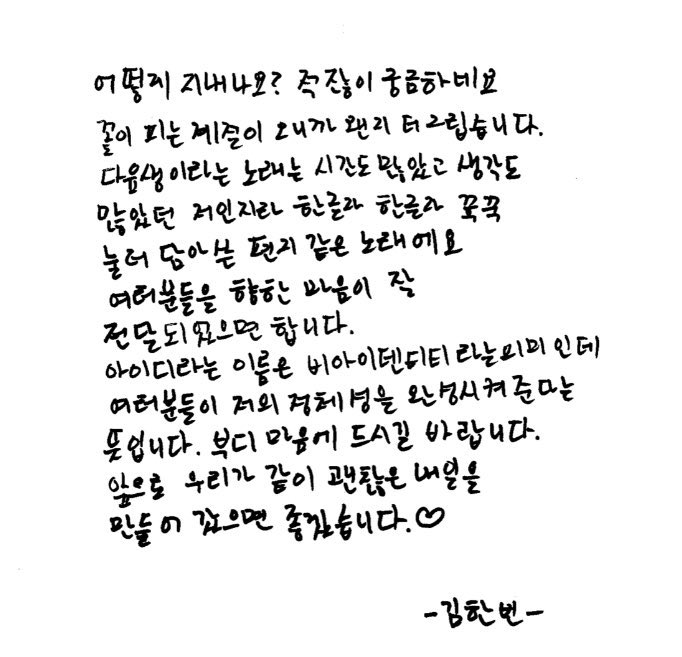 어떻게 지내나요? 적잖이 궁금하네요
꽃이 피는 계절이 오니까 왠지 더 그립습니다.
다음생이라는 노래는 시간도 많았고 생각도
많았던 저인지라 한글자 한글자 꾹꾹
눌러 담아 쓴 편지 같은 노래에요
여러분들을 향한 마음이 잘
전달되었으면 합니다.
아이디라는 이름은 비아이덴티티라는 의미인데
여러분들이 저의 정체성을 완성시켜준다는
뜻입니다. 부디 마음에 드시길 바랍니다.
앞으로 우리가 같이 괜찮은 내일을
만들어 갔으면 좋겠습니다.♡
-김한빈-